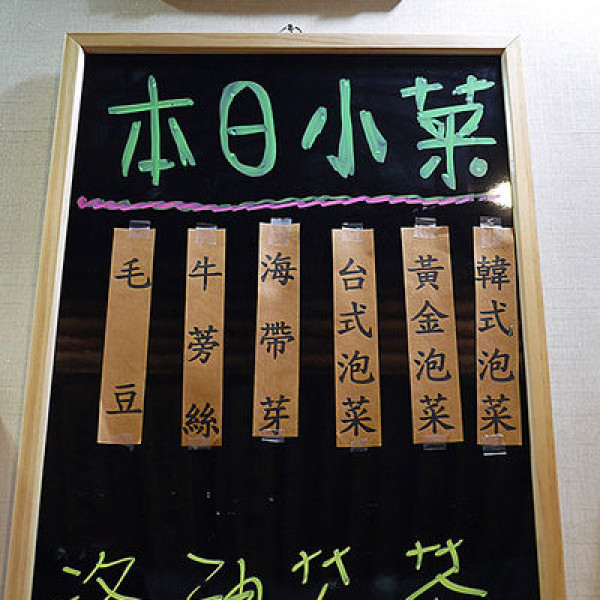 本日小菜
韓式泡菜
黃金泡菜
台式泡菜
海帶芽
牛蒡絲
毛豆